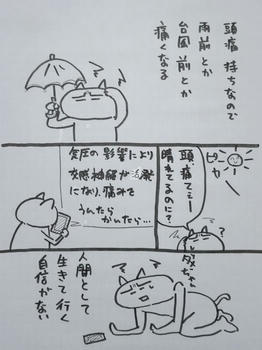 頭痛 持ちなので
雨前とか
台風前とか
痛くなる
ピカ
頭、痛てぇー
晴れてるのに?
気圧の影響により
交感神経が活発
になり、痛みを
うんたら
かんたら…
人間として
生きて行く
自信がない